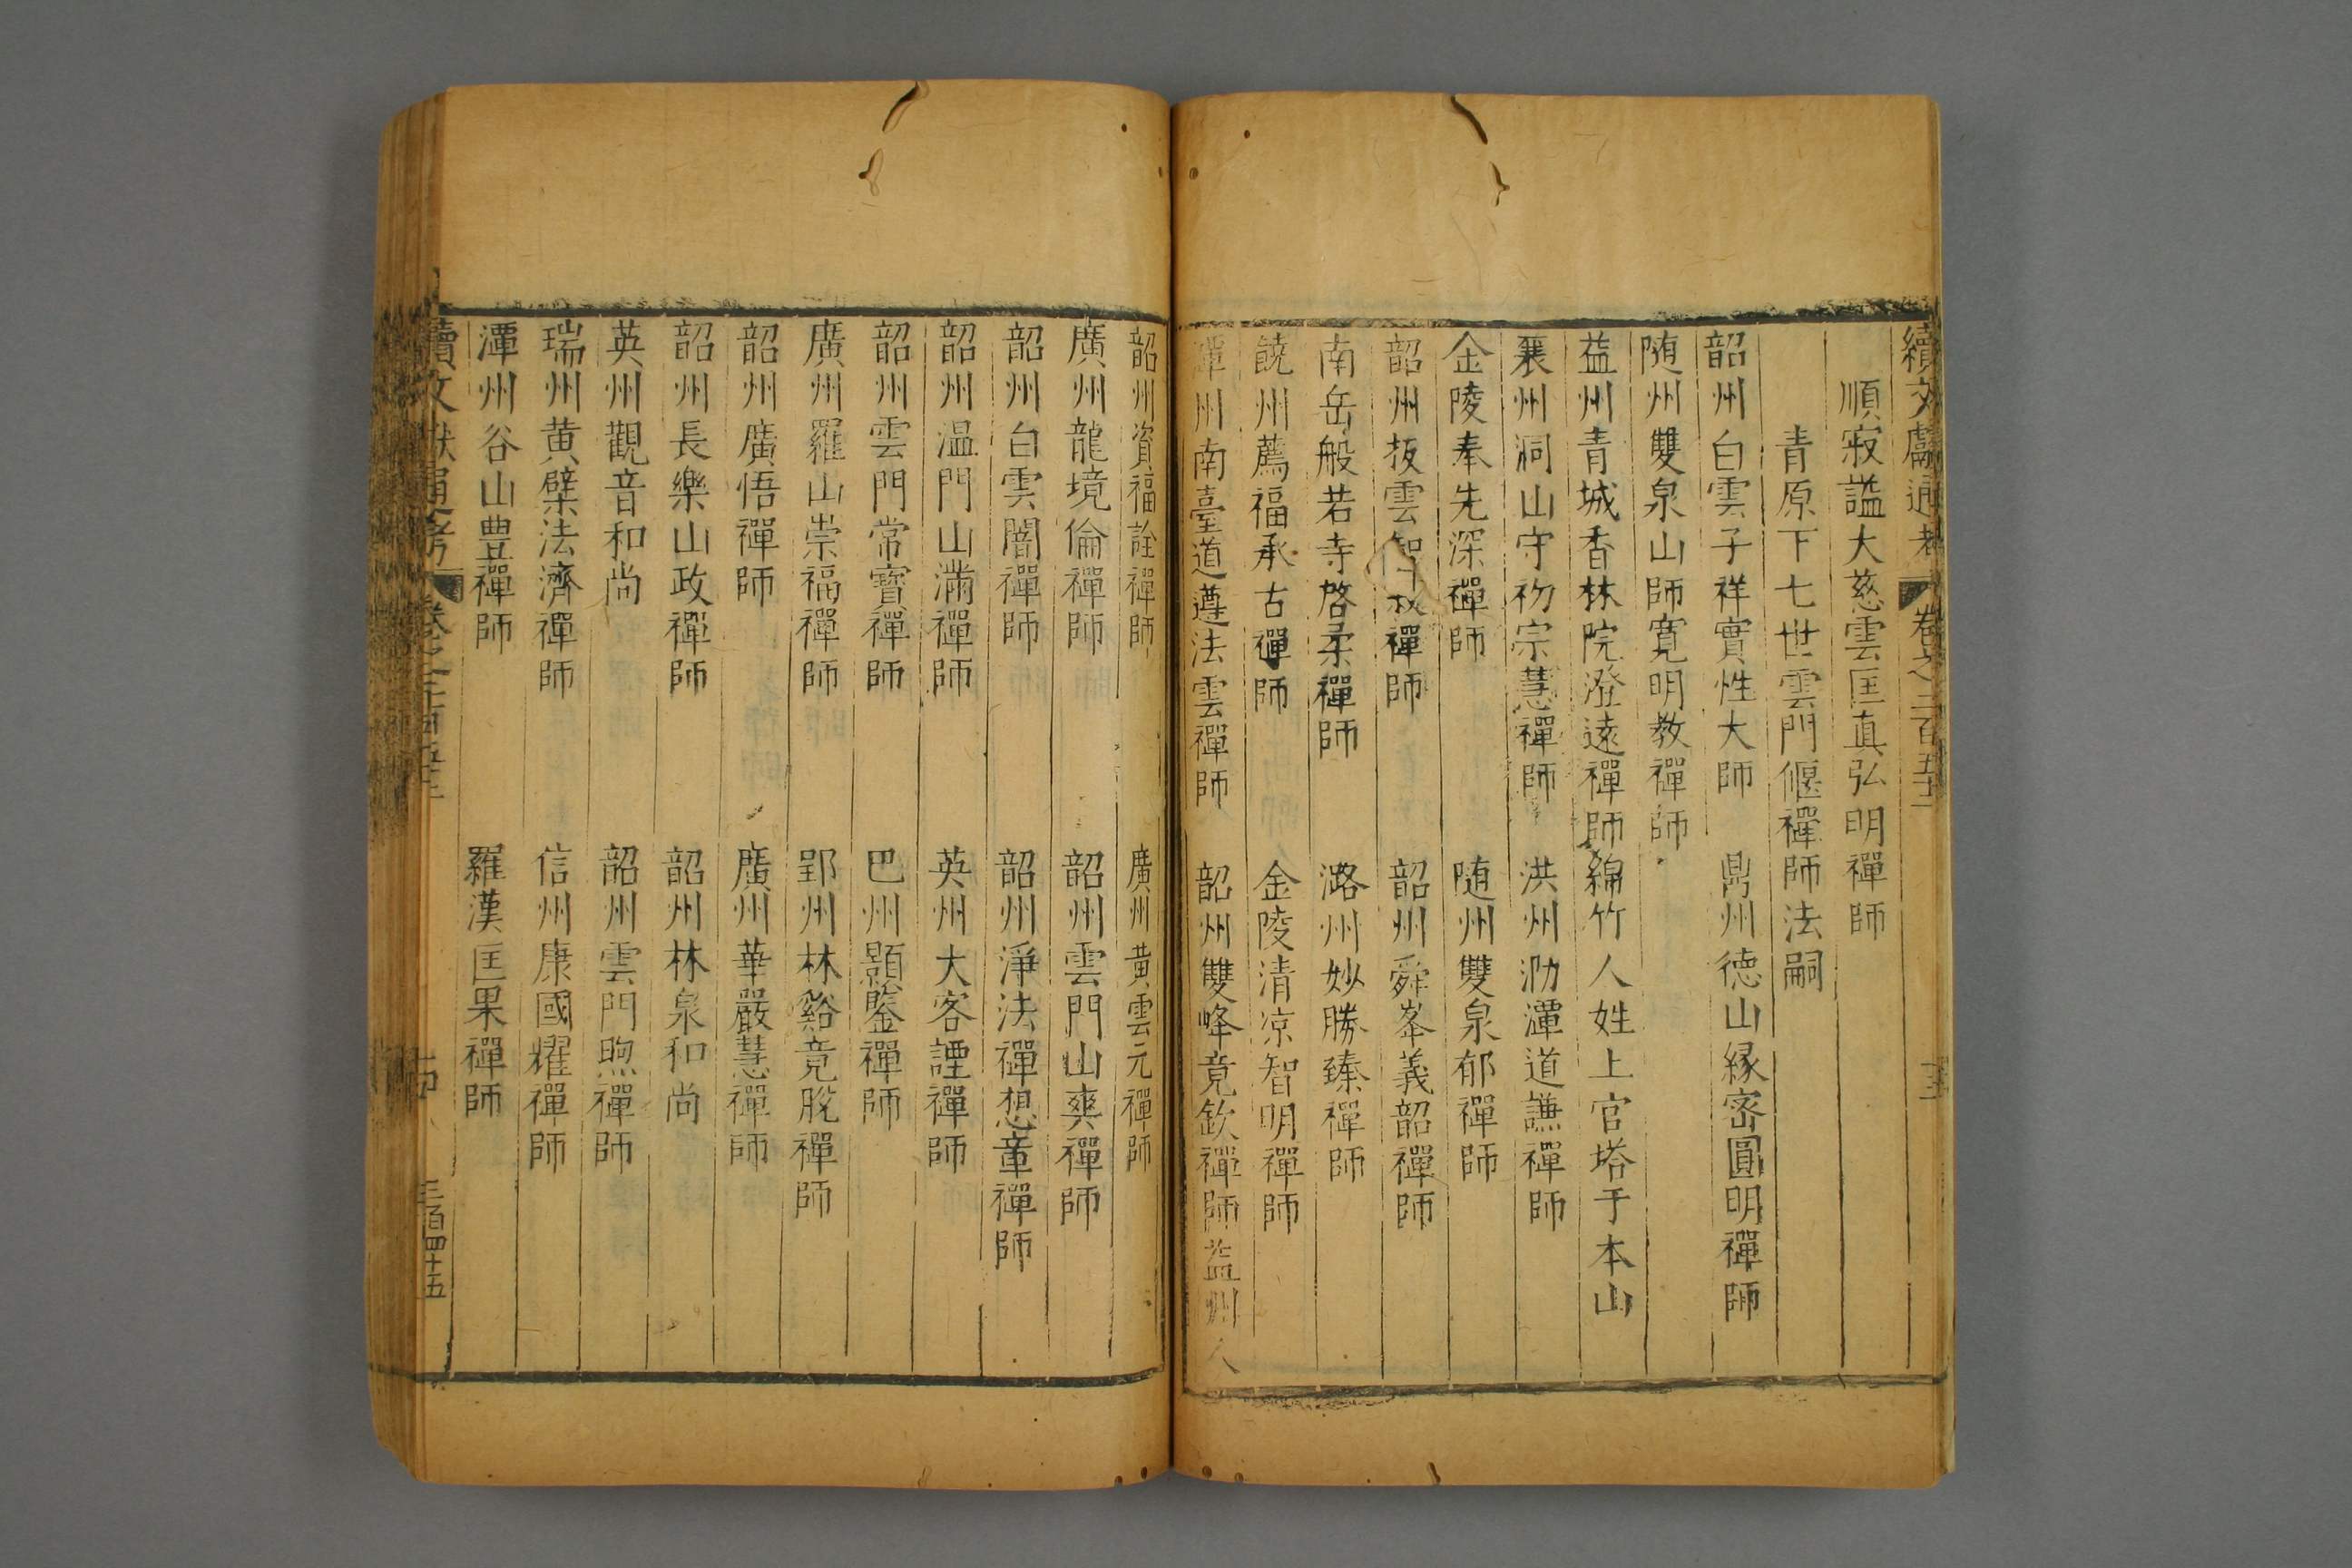 續文獻通考 卷之二百五十
順寂謚大慈雲匡真弘明禪師
青原下七世雲門偃禪師法嗣
韶州白雲子祥實性大師 鼎州德山緣密圓明禪師
随州雙泉山師寛明教禪師
益州青城香林院澄遠禪師綿竹人姓上官塔于本山
襄州洞山守初宗慧禪師 洪州泐潭道謙禪師
金陵奉先深禪師 随州雙泉郁禪師
韶州披雲智寂禪師 韶州舜峯義韶禪師
南岳般若寺啓柔禪師 潞州妙勝臻禪師
饒州薦福承古禪師 金陵清凉智明禪師
潭州南臺道遵法雲禪師 韶州雙峰竟欽禪師益州人
韶州資福詮禪師 廣州黄雲元禪師
廣州龍境倫禪師 韶州雲門山爽禪師
韶州白雲闇禪師 韶州淨法禪想章禪師
韶州温門山滿禪師 英州大容諲禪師
韶州雲門常寳禪師 巴州顥鑒禪師
廣州羅山崇福禪師 郢州林谿竟脫禪師
韶州廣悟禪師 廣州華嚴慧禪師
韶州長樂山政禪師 韶州林泉和尚
英州觀音和尚 韶州雲門煦禪師
瑞州黄檗法濟禪師 信州康國耀禪師
潭州谷山豊禪師 羅漢匡果禪師
續文獻通考 卷之二百五十 十四 三百四十五